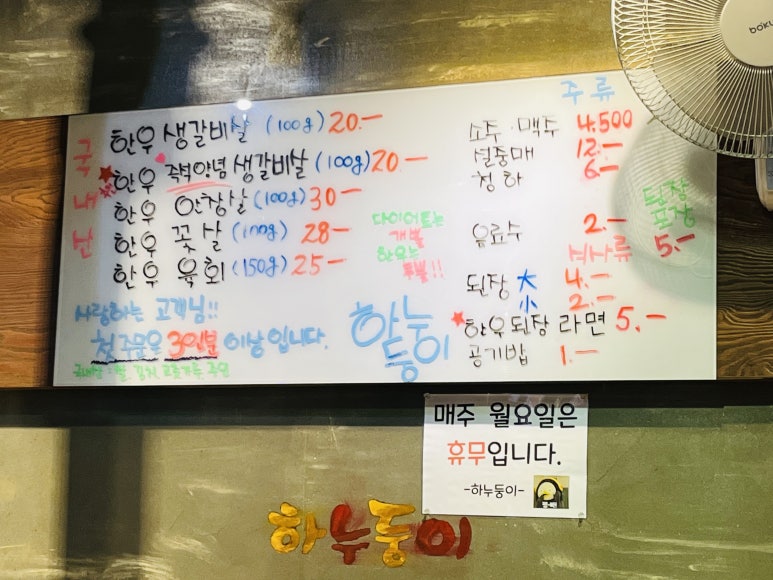 국내산
한우 생갈비살 (100g) 20.-
한우 즉석양념 생갈비살 (100g) 20.-
한우 안창살 (100g) 30-
한우 꽃살 (100g) 28-
한우 육회 (150g) 25-
다이어트는
개뿔
한우는
투뿔!!
사랑하는 고객님!!
첫주문은 3인분 이상 입니다.
국내산 : 쌀, 김치, 고춧가루,
하누둥이
주류
소주·맥주 4.500
설중매 12.-
청하 6.-
음료수 2.-
식사류
된장
포장
5.-
된장 大 4.-
小 2.-
한우된장 라면 5.-
공기밥 1.-
매주 월요일은
휴무입니다.
-하누둥이-
하누둥이